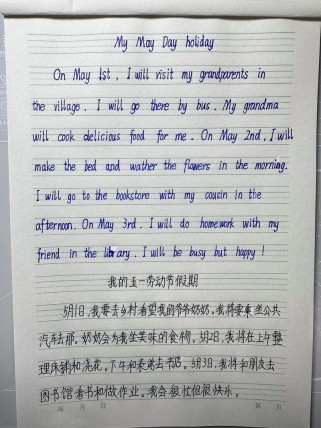 My May Day holiday
On May 1st, I will visit my grandparents in
the village. I will go there by bus. My grandma
will cook delicious food for me. On May 2nd, I will
make the bed and wather the flowers in the morning.
I will go to the bookstore with my cousin in the
afternoon. On May 3rd. I will do homework with my
friend in the library. I will be busy but happy!
我的五一劳动节假期
5月1日,我要去乡村看望我的爷爷奶奶。我将要乘坐公共
汽车去那。奶奶会为我做美味的食物。5月2日,我将在上午整
理床铺和浇花。下午和表弟去书店。5月3日,我将和朋友去
图书馆看书和做作业。我会很忙但很快乐。
年 月 日
第 页